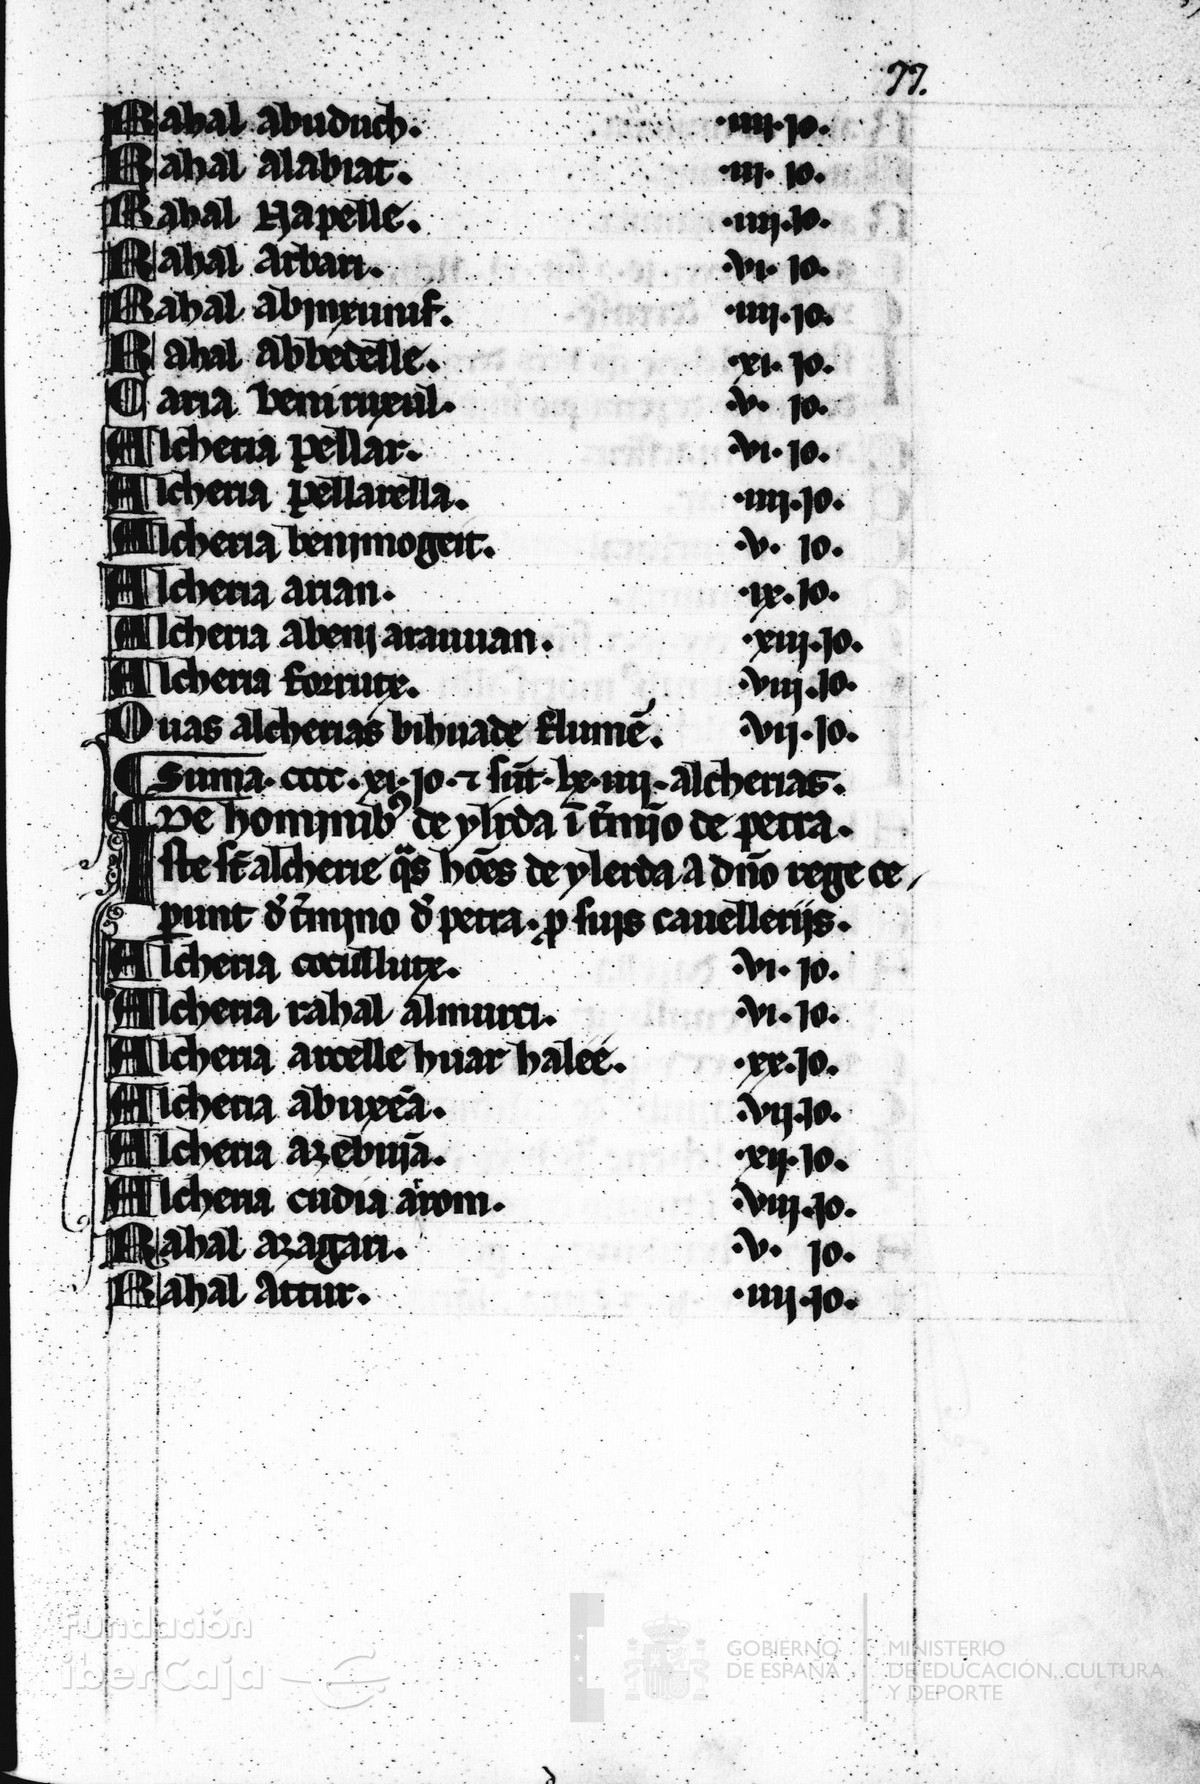 77.
Rahal abuduch. ·iiij·jo.
Rahal alabiat. ·iij· jo.
Rahal Hapelle. ·iiij·jo.
Rahal Arbari. ·vi· jo.
Rahal abinxunif. ·iiij·jo.
Rahal abbecelle. ·xi· jo.
Caria beniruxul. ·v· jo.
Alcheria pellar. ·vi· jo.
Alcheria pellarella. ·iiij·jo.
Alcheria benimogeit. ·v· jo.
Alcheria arian. ·ix·jo.
Alcheria abenj arauuan. ·xiij·jo.
Alcheria forrutx. ·viij·jo.
Duas alcherias bihuade flumē. ·vij·jo.
¶ Suma· cccc·xi·jo·⁊ sūt·lx·iiij·alcherias.
¶ De hominibꝰ de ylrda ī t̄mīo de petra.
Iste st̄ alcherie q̄s hōēs de ylerda a dn̄o rege ce
punt d̄ t̄mino d̄ petra·ꝓ suis cauellerijs.
Alcheria cocullutx. ·vi· jo.
Alcheria rahal almurci. ·vi·jo.
Alcheria arcelle huar halee. ·xx·jo.
Alcheria abuxcā. ·vij·jo.
Alcheria azebujā. ·xij·jo.
Alcheria cudia arom. ·viij·jo.
Rahal azagari. ·v· jo.
Rahal Attur. ·iiij·jo.
Fundación
iberCaja
GOBIERNO
DE ESPAÑA
MINISTERIO
DE EDUCACIÓN, CULTURA
Y DEPORTE